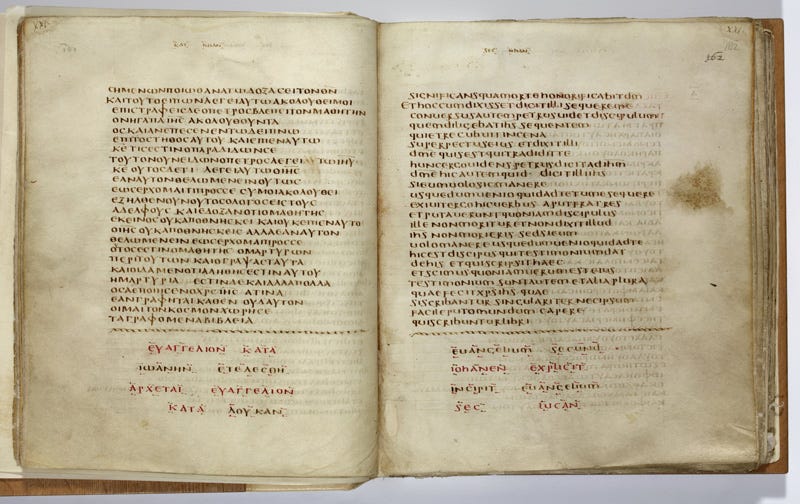 ϹΗΜΕΝΩΝΠΟΙΩΘΑΝΑΤΩΔΟΞΑϹΕΙΤΟΝΘΝ
ΚΑΙΤΟΥΤΟΕΙΠΩΝΛΕΓΕΙΑΥΤΩΑΚΟΛΟΥΘΕΙΜΟΙ
ΕΠΙϹΤΡΑΦΕΙϹΔΕΟΠΕΤΡΟϹΒΛΕΠΕΙΤΟΝΜΑΘΗΤΗΝ
ΟΝΗΓΑΠΑΙΗϹ ΑΚΟΛΟΥΘΟΥΝΤΑ
ΟϹΚΑΙΑΝΕΠΕϹΕΝΕΝΤΩΔΕΙΠΝΩ
ΕΠΙΤΟϹΤΗΘΟϹΑΥΤΟΥ ΚΑΙΕΙΠΕΝΑΥΤΩ
ΚΕΤΙϹΕϹΤΙΝΟΠΑΡΑΔΙΔΩΝϹΕ
ΤΟΥΤΟΝΟΥΝΕΙΔΩΝΟΠΕΤΡΟϹΛΕΓΕΙΑΥΤΩΙΗΥ
ΚΕΟΥΤΟϹΔΕΤΙ ΛΕΓΕΙΑΥΤΩΟΙΗϹ
ΕΑΝΑΥΤΟΝΘΕΛΩΜΕΝΕΙΝΟΥΤΩϹ
ΕΩϹΕΡΧΟΜΑΙΤΙΠΡΟϹϹΕ ϹΥΜΟΙΑΚΟΛΟΥΘΕΙ
ΕΞΗΛΘΕΝΟΥΝΟΥΤΟϹΟΛΟΓΟϹΕΙϹΤΟΥϹ
ΑΔΕΛΦΟΥϹ ΚΑΙΕΔΟΞΑΝΟΤΙΟΜΑΘΗΤΗϹ
ΕΚΕΙΝΟϹΟΥΚΑΠΟΘΝΗϹΚΕΙ ΚΑΙΟΥΚΕΙΠΕΝΑΥΤΟ
ΟΙΗϹΟΥΚΑΠΟΘΝΗϹΚΕΙϹ ΑΛΛΑΕΑΝΑΥΤΟΝ
ΘΕΛΩΜΕΝΕΙΝΕΩϹΕΡΧΟΜΑΙΠΡΟϹϹΕ
ΟΤΟϹΕϹΤΙΝΟΜΑΘΗΤΗϹ ΟΜΑΡΤΥΡΩΝ
ΠΕΡΙΤΟΥΤΩΝ ΚΑΙΟΓΡΑΨΑϹΤΑΥΤΑ
ΚΑΙΟΙΔΑΜΕΝΟΤΙΑΛΗΘΗϹΕϹΤΙΝΑΥΤΟΥ
ΗΜΑΡΤΥΡΙΑ ΕϹΤΙΝΔΕΚΑΙΑΛΛΑΠΟΛΛΑ
ΟϹΑΕΠΟΙΗϹΕΝΟΧΡϹΙΗϹ ΑΤΙΝΑ
ΕΑΝΓΡΑΦΗΤΑΙΚΑΘΕΝ ΟΥΔΑΥΤΟΝ
ΟΙΜΑΙΤΟΝΚΟϹΜΟΝΧΩΡΗϹΕ
ΤΑΓΡΑΦΟΜΕΝΑΒΙΒΛΕΙΑ
ΕΥΑΓΓΕΛΙΟΝ ΚΑΤΑ
ΙΩΑΝΗΝ ΕΤΕΛΕϹΘΗ
ΑΡΧΕΤΑΙ ΕΥΑΓΓΕΛΙΟΝ
ΚΑΤΑ ΛΟΥΚΑΝ
162
significansquamortehonorificabitdm
Ethoccumdixissetdicitillisequereme
conuersusautempetrusuidetdiscipulum
quemdiligebatihs sequentem
quietrecubuitincena
superpectuseius etdixitilli
dmequisestquitraditte
huncergouidenspetrusdicitadihm
dmehicautemquid dicitilliihs
sieumuolosicmanere
usquedumuenioquidadte tumesequere
exiuitergohicuerbus aputfratres
etputaueruntquoniamdiscipulus
illenonmoriturEtnondixitillud
ihs nonmorieris sedsieum
uolomanereusquedumuenioquidadte
hicestdiscipulusquitestimoniumdat
dehis etquiscripsithaec
etscimusquoniamuerumesteius
testimonium suntautemetaliaplura
quaefecitxpsihs quae
siscribantur singulariter necipsum
facileputomundumcapere
quiscribunturlibri
euangelium secund
iohanen explicit
incipit euangelium
sec lucan